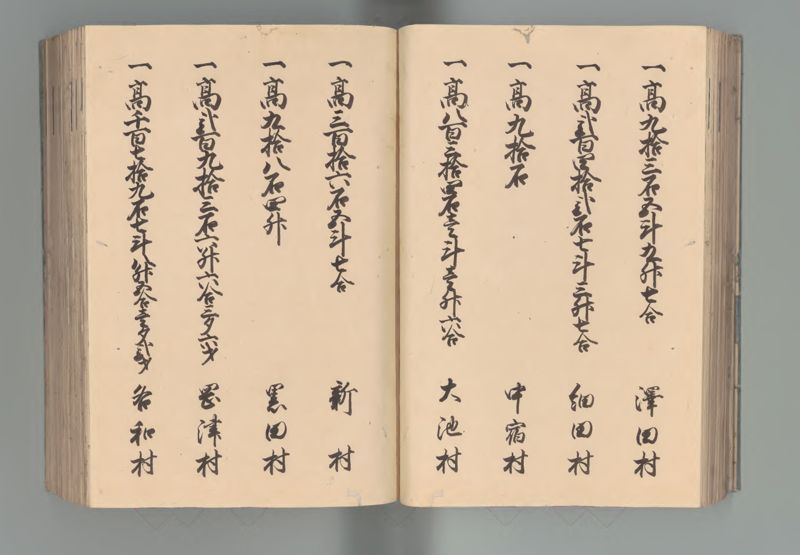 一高九拾三石五斗九升七合 澤田村
一高弐百四拾弐石七斗三升七合 細田村
一高九拾石 中宿村
一高八百三拾四石壱斗壱升六合 大池村
一高三百拾六石五斗七合 新村
一高九拾八石四升 黒田村
一高弐百九拾三石六升六合三夕六才 岡津村
一高千百七拾九石七斗八升五合壱夕弐才 各和村